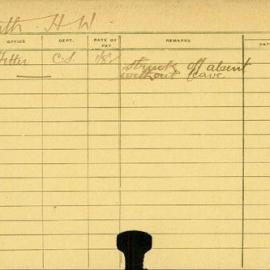 H W
OFFICE DEPT. RATE OF PAY REMARKS DAT
Fitter C.S. 18/ struck off absent
without leave